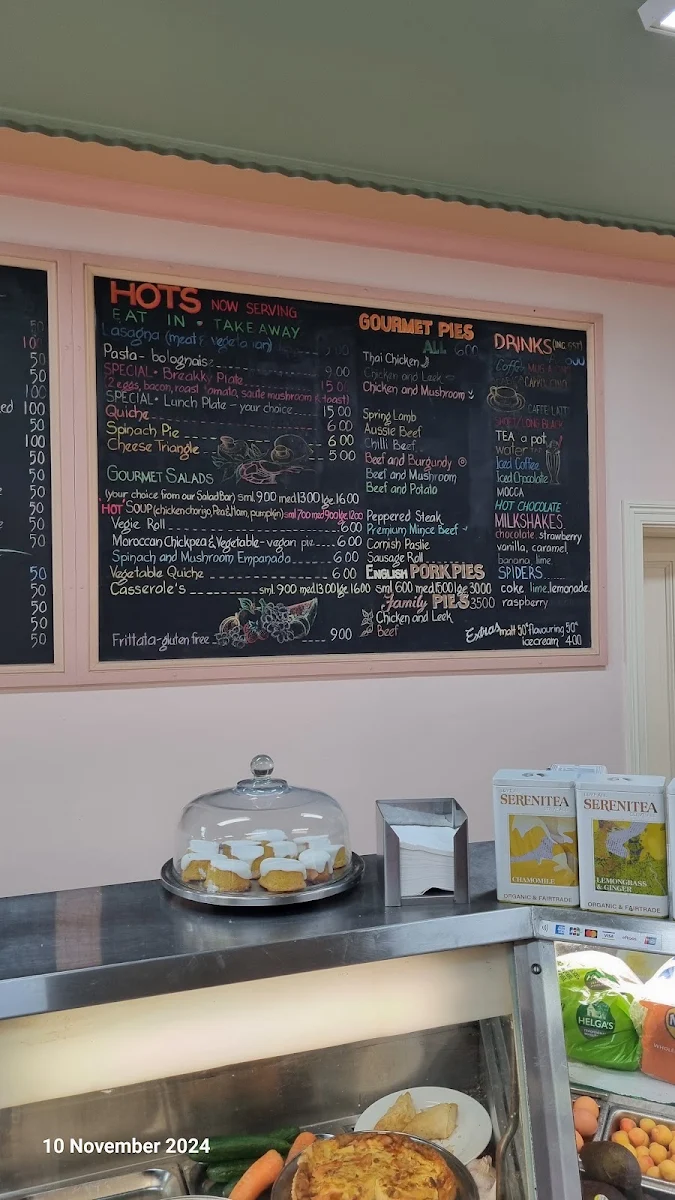 HOTS NOW SERVING
EAT IN • TAKEAWAY
Lasagna (meat & vegetarian) 9.00
Pasta - bolognais 9.00
SPECIAL • Breakky Plate 15.00
(2 eggs, bacon, roast tomato, saute mushroom & toast)
SPECIAL • Lunch Plate - your choice 15.00
Quiche 6.00
Spinach Pie 6.00
Cheese Triangle 5.00
GOURMET SALADS
(your choice from our Salad Bar) sml 9.00 med 13.00 lge 16.00
HOT SOUP (chicken chorizo, Pea & Ham, pumpkin) sml 7.00 med 9.00 lge 12.00
Vegie Roll 6.00
Moroccan Chickpea & Vegetable - vegan pie 6.00
Spinach and Mushroom Empanada 6.00
Vegetable Quiche 6.00
Casserole's sml. 9.00 med. 13.00 lge. 16.00
Frittata - gluten free 9.00
GOURMET PIES
ALL 6.00
Thai Chicken
Chicken and Leek
Chicken and Mushroom
Spring Lamb
Aussie Beef
Chilli Beef
Beef and Burgundy
Beef and Mushroom
Beef and Potato
Peppered Steak
Premium Mince Beef
Cornish Pastie
Sausage Roll
ENGLISH PORK PIES
sml 6.00 med 15.00 lge 30.00
Family PIES 35.00
Chicken and Leek
Beef
DRINKS (INC GST)
Coffee MUG
CAPPUCCINO
CAFFE LATTE
SHORT/LONG BLACK
TEA a pot
water
Iced Coffee
Iced Chocolate
MOCCA
HOT CHOCOLATE
MILKSHAKES.
chocolate. strawberry
vanilla, caramel,
banana, lime
SPIDERS.
coke lime. lemonade.
raspberry
Extras malt 50¢ flavouring 50¢
icecream 4.00
50
50
50
50
100
50
100
50
50
50
50
50
50
50
50
50
SERENITEA
CHAMOMILE
ORGANIC & FAIRTRADE
SERENITEA
LEMONGRASS
& GINGER
ORGANIC & FAIRTRADE
VISA
HELGA'S
10 November 2024